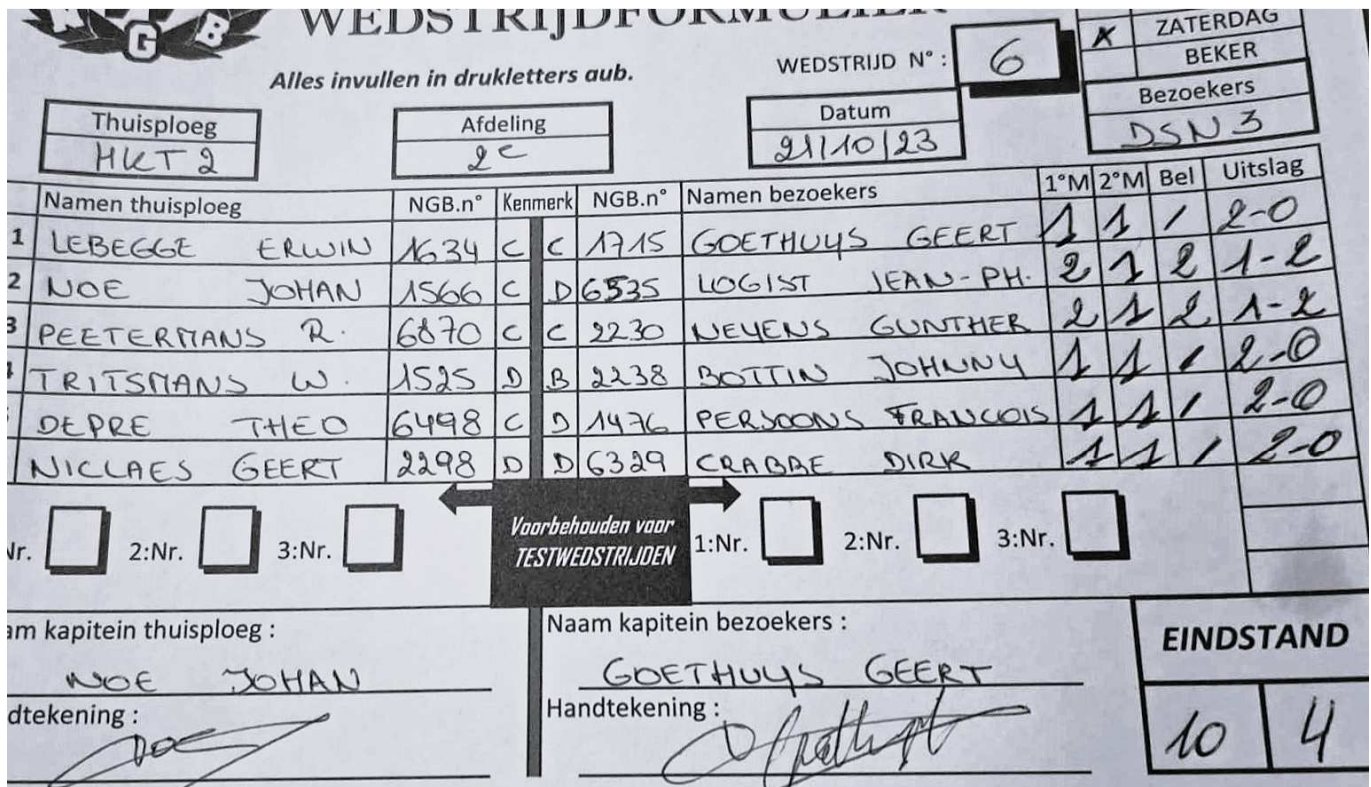 G B
WEDSTRIJDFORMULIER
X ZATERDAG
BEKER
Alles invullen in drukletters aub.
WEDSTRIJD N° : 6
Thuisploeg
HKT 2
Afdeling
2C
Datum
21/10/23
Bezoekers
DSN 3
Namen thuisploeg NGB.n° Kenmerk NGB.n° Namen bezoekers 1°M 2°M Bel Uitslag
1 LEBEGGE ERWIN 1634 C C 1715 GOETHUYS GEERT 1 1 / 2-0
2 NOE JOHAN 1566 C D 6535 LOGIST JEAN-PH. 2 1 2 1-2
3 PEETERMANS R. 6870 C C 2230 NEYENS GUNTHER 2 1 2 1-2
TRITSMANS W. 1525 D B 2238 BOTTIN JOHNNY 1 1 / 2-0
DEPRE THEO 6498 C D 1476 PERSOONS FRANCOIS 1 1 / 2-0
NICLAES GEERT 2298 D D 6329 CRABBE DIRK 1 1 / 2-0
Nr. 2:Nr. 3:Nr.
Voorbehouden voor
TESTWEDSTRIJDEN
1:Nr. 2:Nr. 3:Nr.
am kapitein thuisploeg :
NOE JOHAN
dtekening :
Naam kapitein bezoekers :
GOETHUYS GEERT
Handtekening :
EINDSTAND
10 4